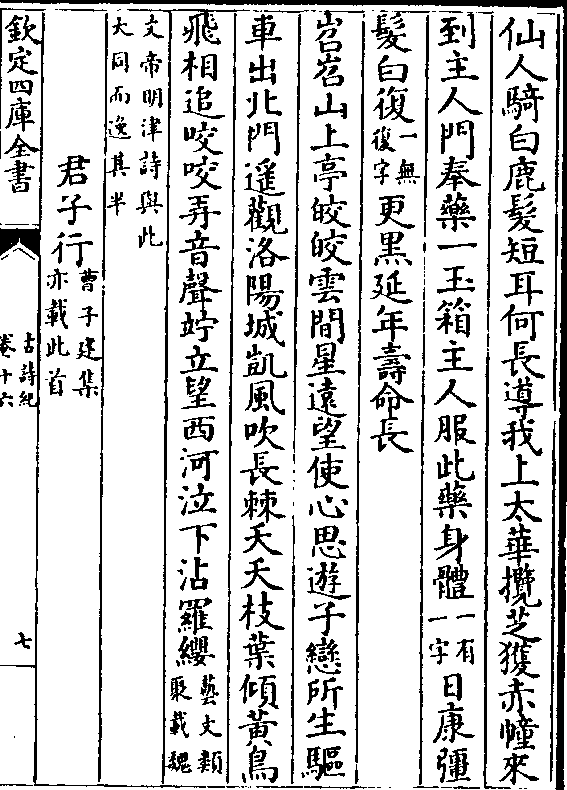 仙人騎白鹿髮短耳何長導我上太華攬芝獲赤幢來
到主人門奉藥一玉箱主人服此藥身體一有一字日康彊
髮白復一無復字更黑延年壽命長
岧岧山上亭皎皎雲間星遠望使心思遊子戀所生驅
車出北門遥觀洛陽城凱風吹長棘夭夭枝葉傾黃鳥
飛相追咬咬弄音聲竚立望西河泣下沾羅纓藝文類聚載魏
文帝明津詩與此大同而逸其半
君子行曹子建集亦載此首
欽定四庫全書
古詩紀卷十六
七